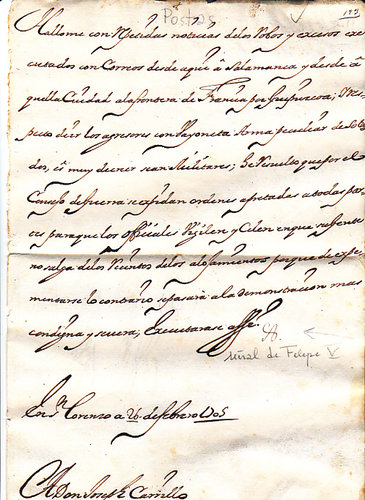 Postas
197
Hallome con repetidas noticias de los Robos y excesos exe
cutados con Correos desde aqui â Salamanca y desde â
quella Ciudad a la frontera de Francia por Guipuzcoa; Y res
pecto de ir los agresores con Vayoneta Arma peculiar de Solda
dos, es muy de creer sean Militares; he resuelto que por el
Consejo de Guerra se expidan ordenes apretadas a todas par
tes para que los officiales Vigilen y Celen en que su gente
no salga de los recintos de los aloxamientos porque de expe
rimentarse lo contrario se pasará a la demonstracion mas
condigna y severa; Executarase assi.
señal de Felipe V
En Sn Lorenzo a 26 de febrero
A Don Joseph Carrillo